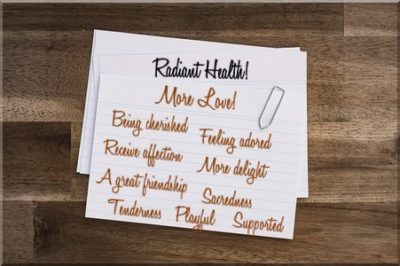 Radiant Health!
More Love!
Being cherished
Feeling adored
Receive affection
More delight
A great friendship
Sacredness
Tenderness Playful Supported